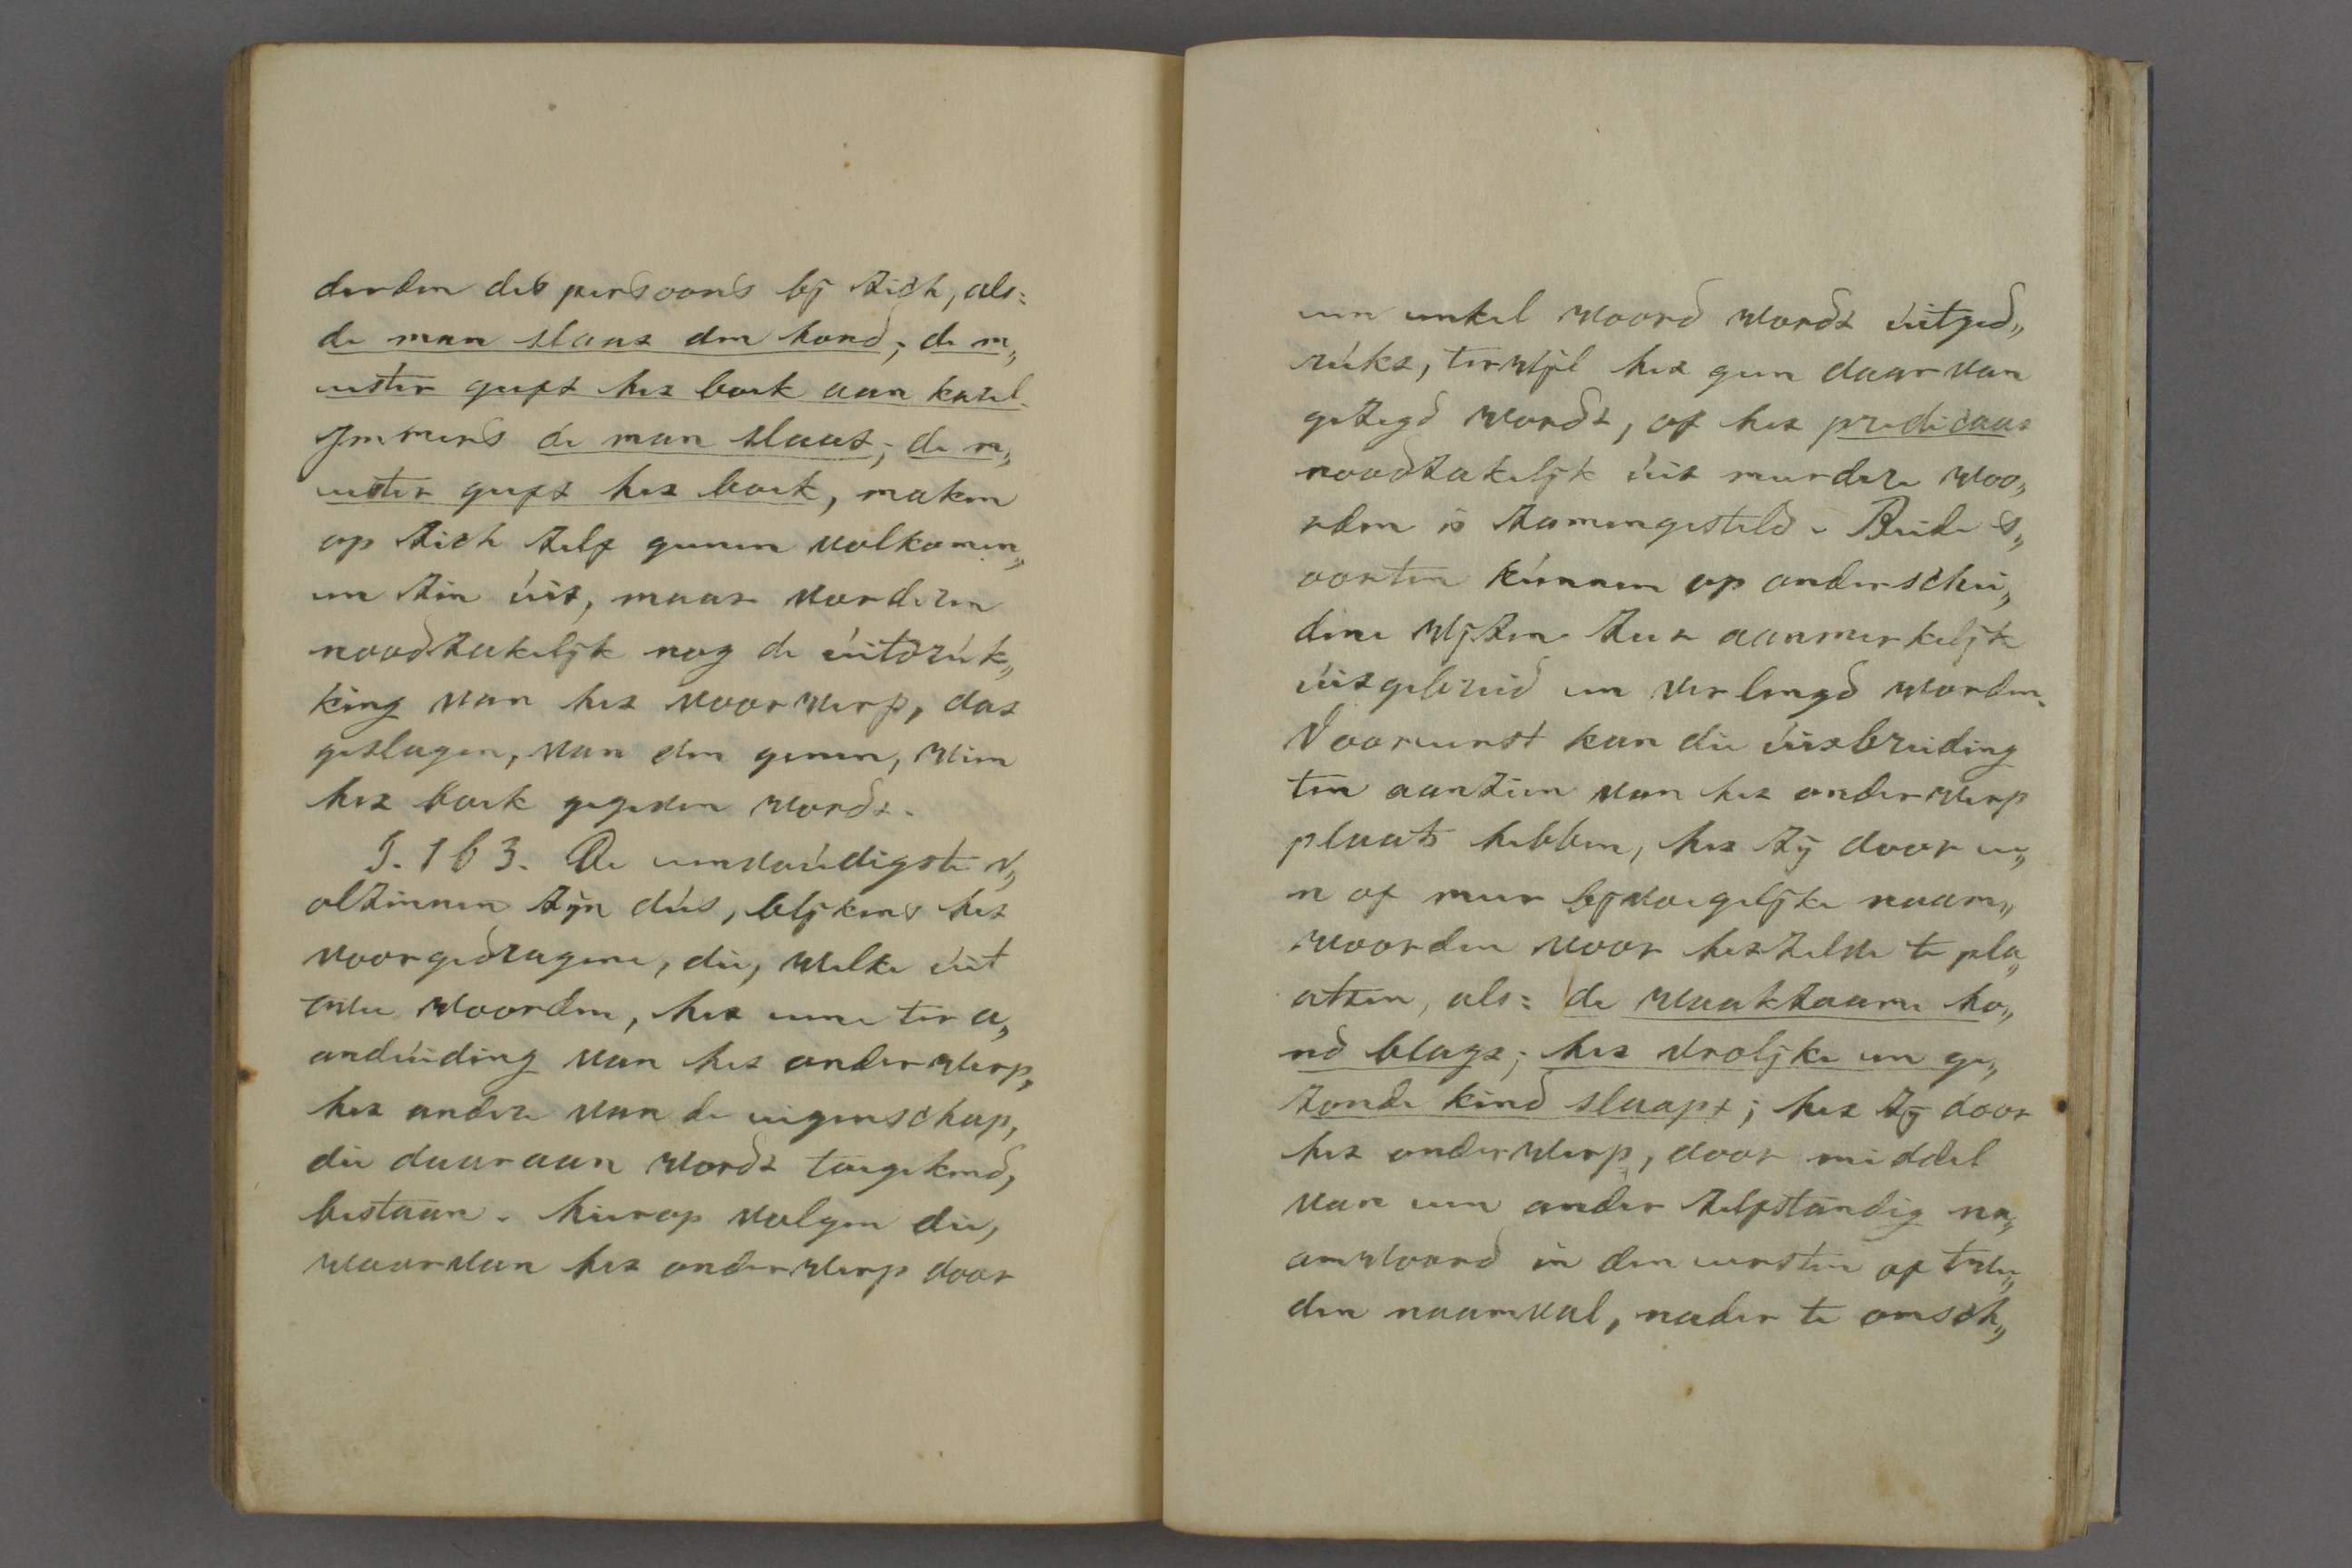 derden des persoons bij zich, als:
de man slaat den hond; de m„
eester geeft het boek aan karel.
Immers de man slaat; de m„
eester geeft het boek, maken
op zich zelf geenen volkomen„
en zin uit, maar vorderen
noodzakelijk nog de uitdruk„
king van het voorwerp, dat
geslagen, van den genen, wien
het boek gegeven wordt.
§. 163. De eenvoudigste v„
olzinnen zijn dus, blijkens het
voorgedragene, die, welke uit
twee woorden, het eene ter a„
anduiding van het onderwerp,
het andere van de eigenschap,
die daaraan wordt toegekend,
bestaan. hierop volgen die,
waarvan het onderwerp door
een enkel woord wordt uitged„
rukt, terwijl het geen daarvan
gezegd wordt, of het predicaat
noodzakelijk uit meerdere woo„
rden is zamengesteld. Beide s„
oorten kunnen op onderschei„
dene wijzen zeer aanmerkelijk
uitgebreid en verlengd worden.
Vooreerst kan die uitbreiding
ten aanzien van het onderwerp
plaats hebben, het zij door ee„
n of meer bijvoegelijke naam„
woorden voor hetzelve te pla„
atsen, als: de waakzaame ho„
nd blaft; het vrolijke en ge„
zonde kind slaapt; het zij door
het onderwerp, door middel
van een ander zelfstandig na„
amwoord in den eersten of twee„
den naamval, nader te omsch„